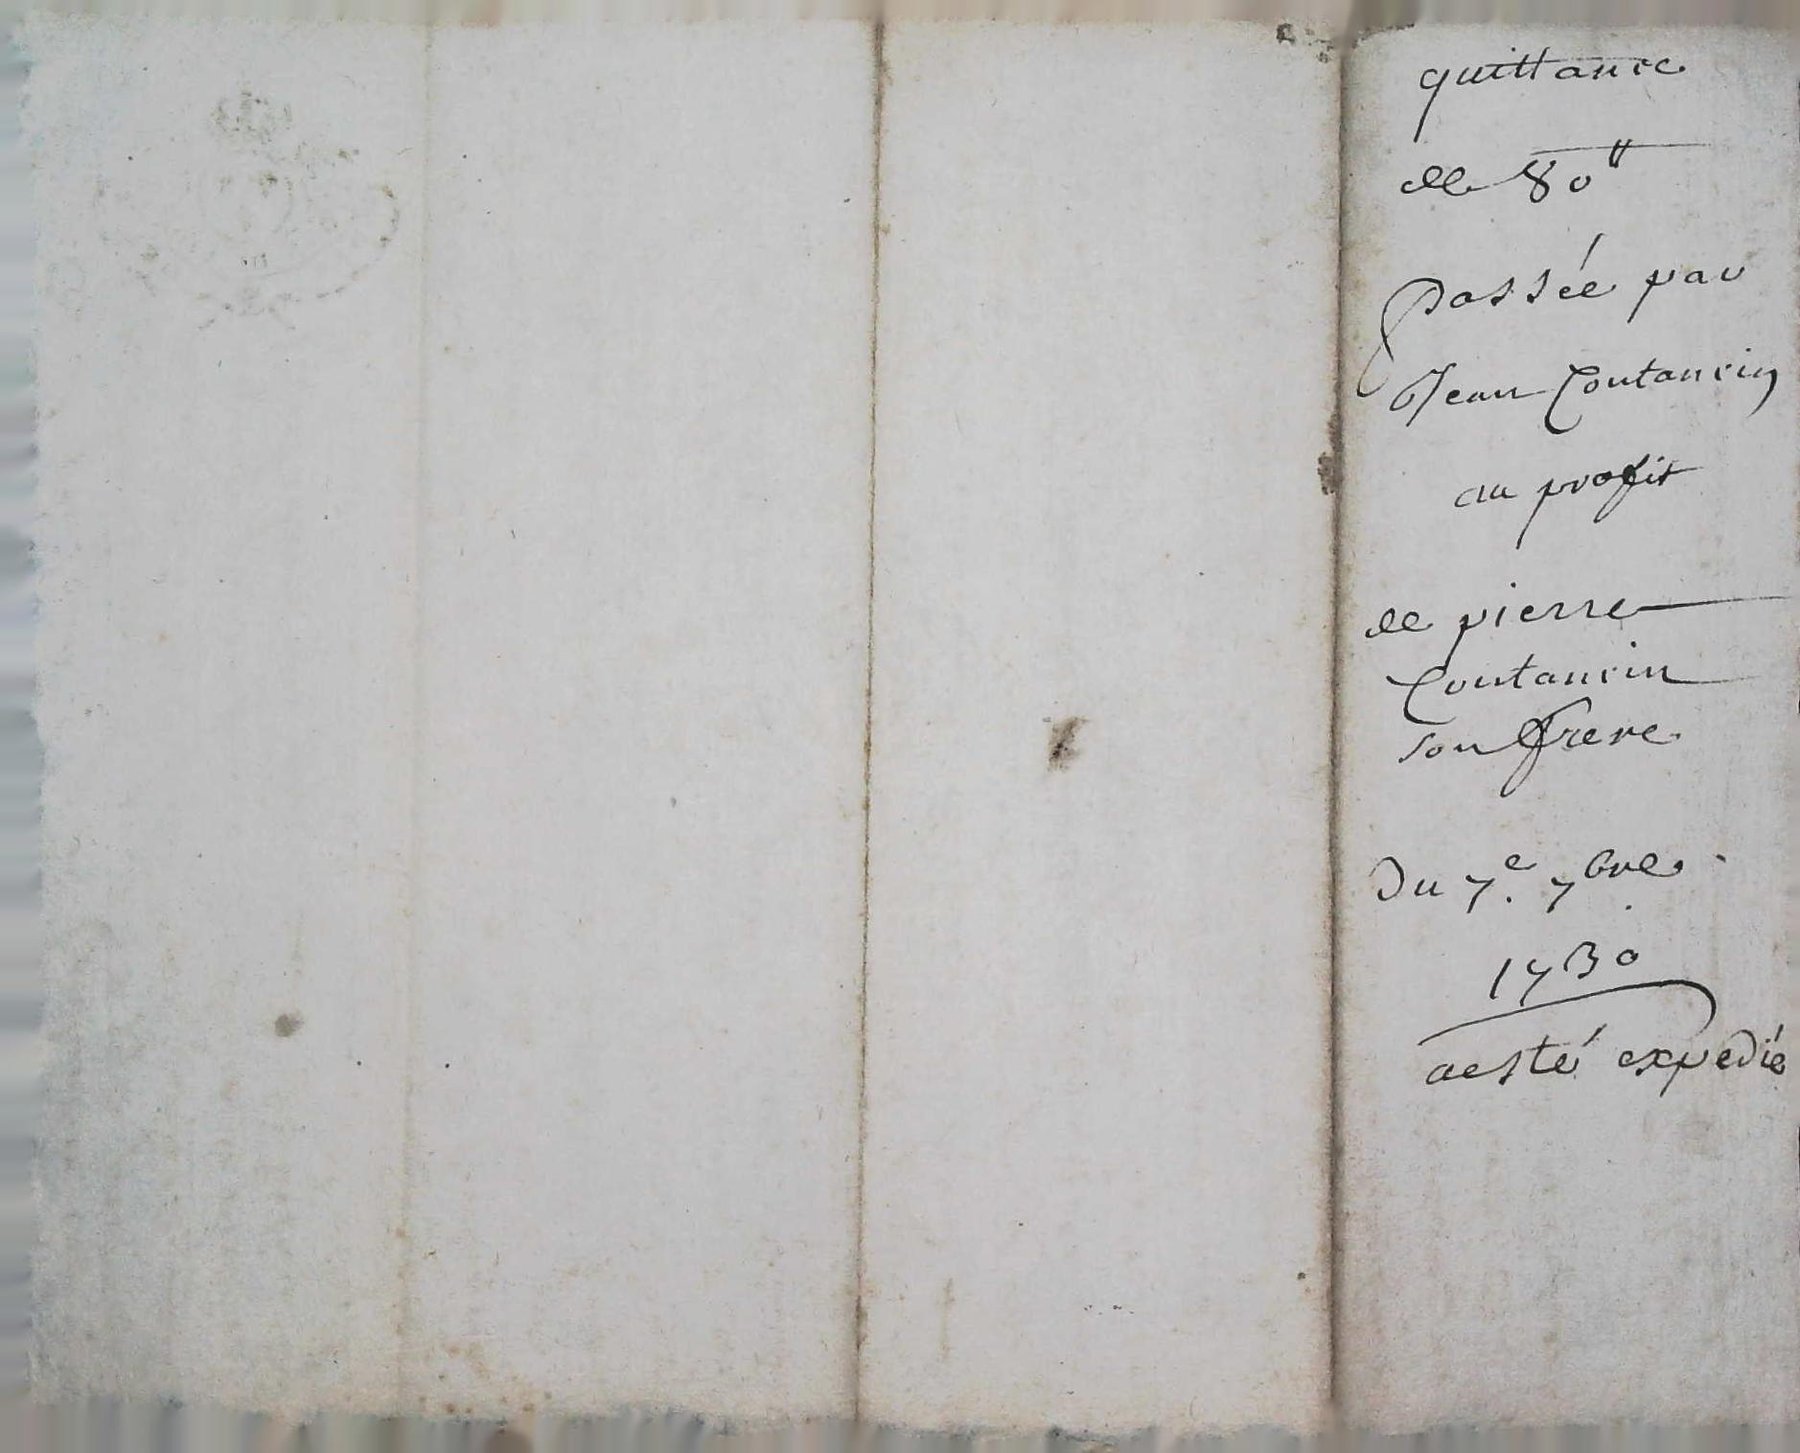 quittance
de 80ᵗᵗ
Passée par
Jean Coutancin
au profit
de pierre
Coutancin
son frere
Du 7ᵉ. 7ᵇʳᵉ.
1730
aesté expedié